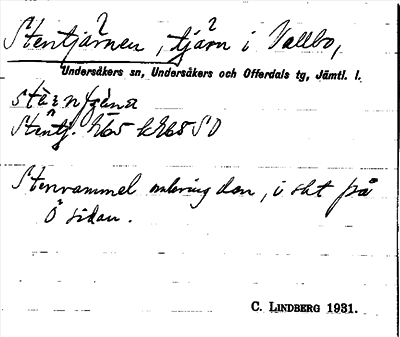 Stentjärnen, tjärn i Vallbo,
Undersåkers sn, Undersåkers och Offerdals tg, Jämtl. l.
Stentj.
Stenvammel omkring den, i sht på
Ö sidan.
C. LINDBERG 1931.